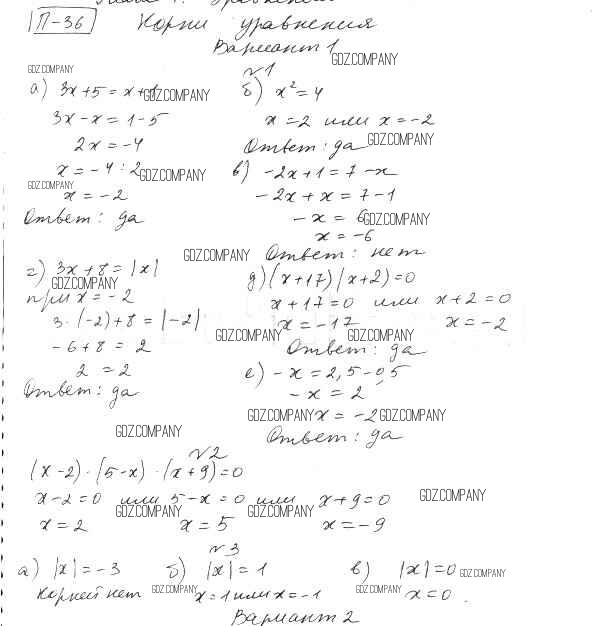 П-36 Корни уравнения
Вариант 1
GDZ.COMPANY
№1
GDZ.COMPANY
а) 3x+5=x+1
GDZ.COMPANY
3x-x=1-5
2x=-4
x=-4:2
GDZ.COMPANY
GDZ.COMPANY
x=-2
Ответ: да
б) x²=4
x=2 или x=-2
Ответ: да
GDZ.COMPANY
в) -2x+1=7-x
-2x+x=7-1
-x=6
GDZ.COMPANY
x=-6
Ответ: нет
GDZ.COMPANY
г) 3x+8=|x|
GDZ.COMPANY
при x=-2
3·(-2)+8=|-2|
-6+8=2
2=2
Ответ: да
д) (x+17)(x+2)=0
x+17=0 или x+2=0
x=-17 x=-2
GDZ.COMPANY GDZ.COMPANY
Ответ: да
е) -x=2,5-0,5
-x=2
GDZ.COMPANY x=-2 GDZ.COMPANY
Ответ: да
GDZ.COMPANY
№2
(x-2)·(5-x)·(x+9)=0
x-2=0 или 5-x=0 или x+9=0
GDZ.COMPANY
GDZ.COMPANY GDZ.COMPANY
x=2 x=5 x=-9
№3
а) |x|=-3 б) |x|=1 в) |x|=0
GDZ.COMPANY
Корней нет GDZ.COMPANY x=1 или x=-1 GDZ.COMPANY x=0.
Вариант 2